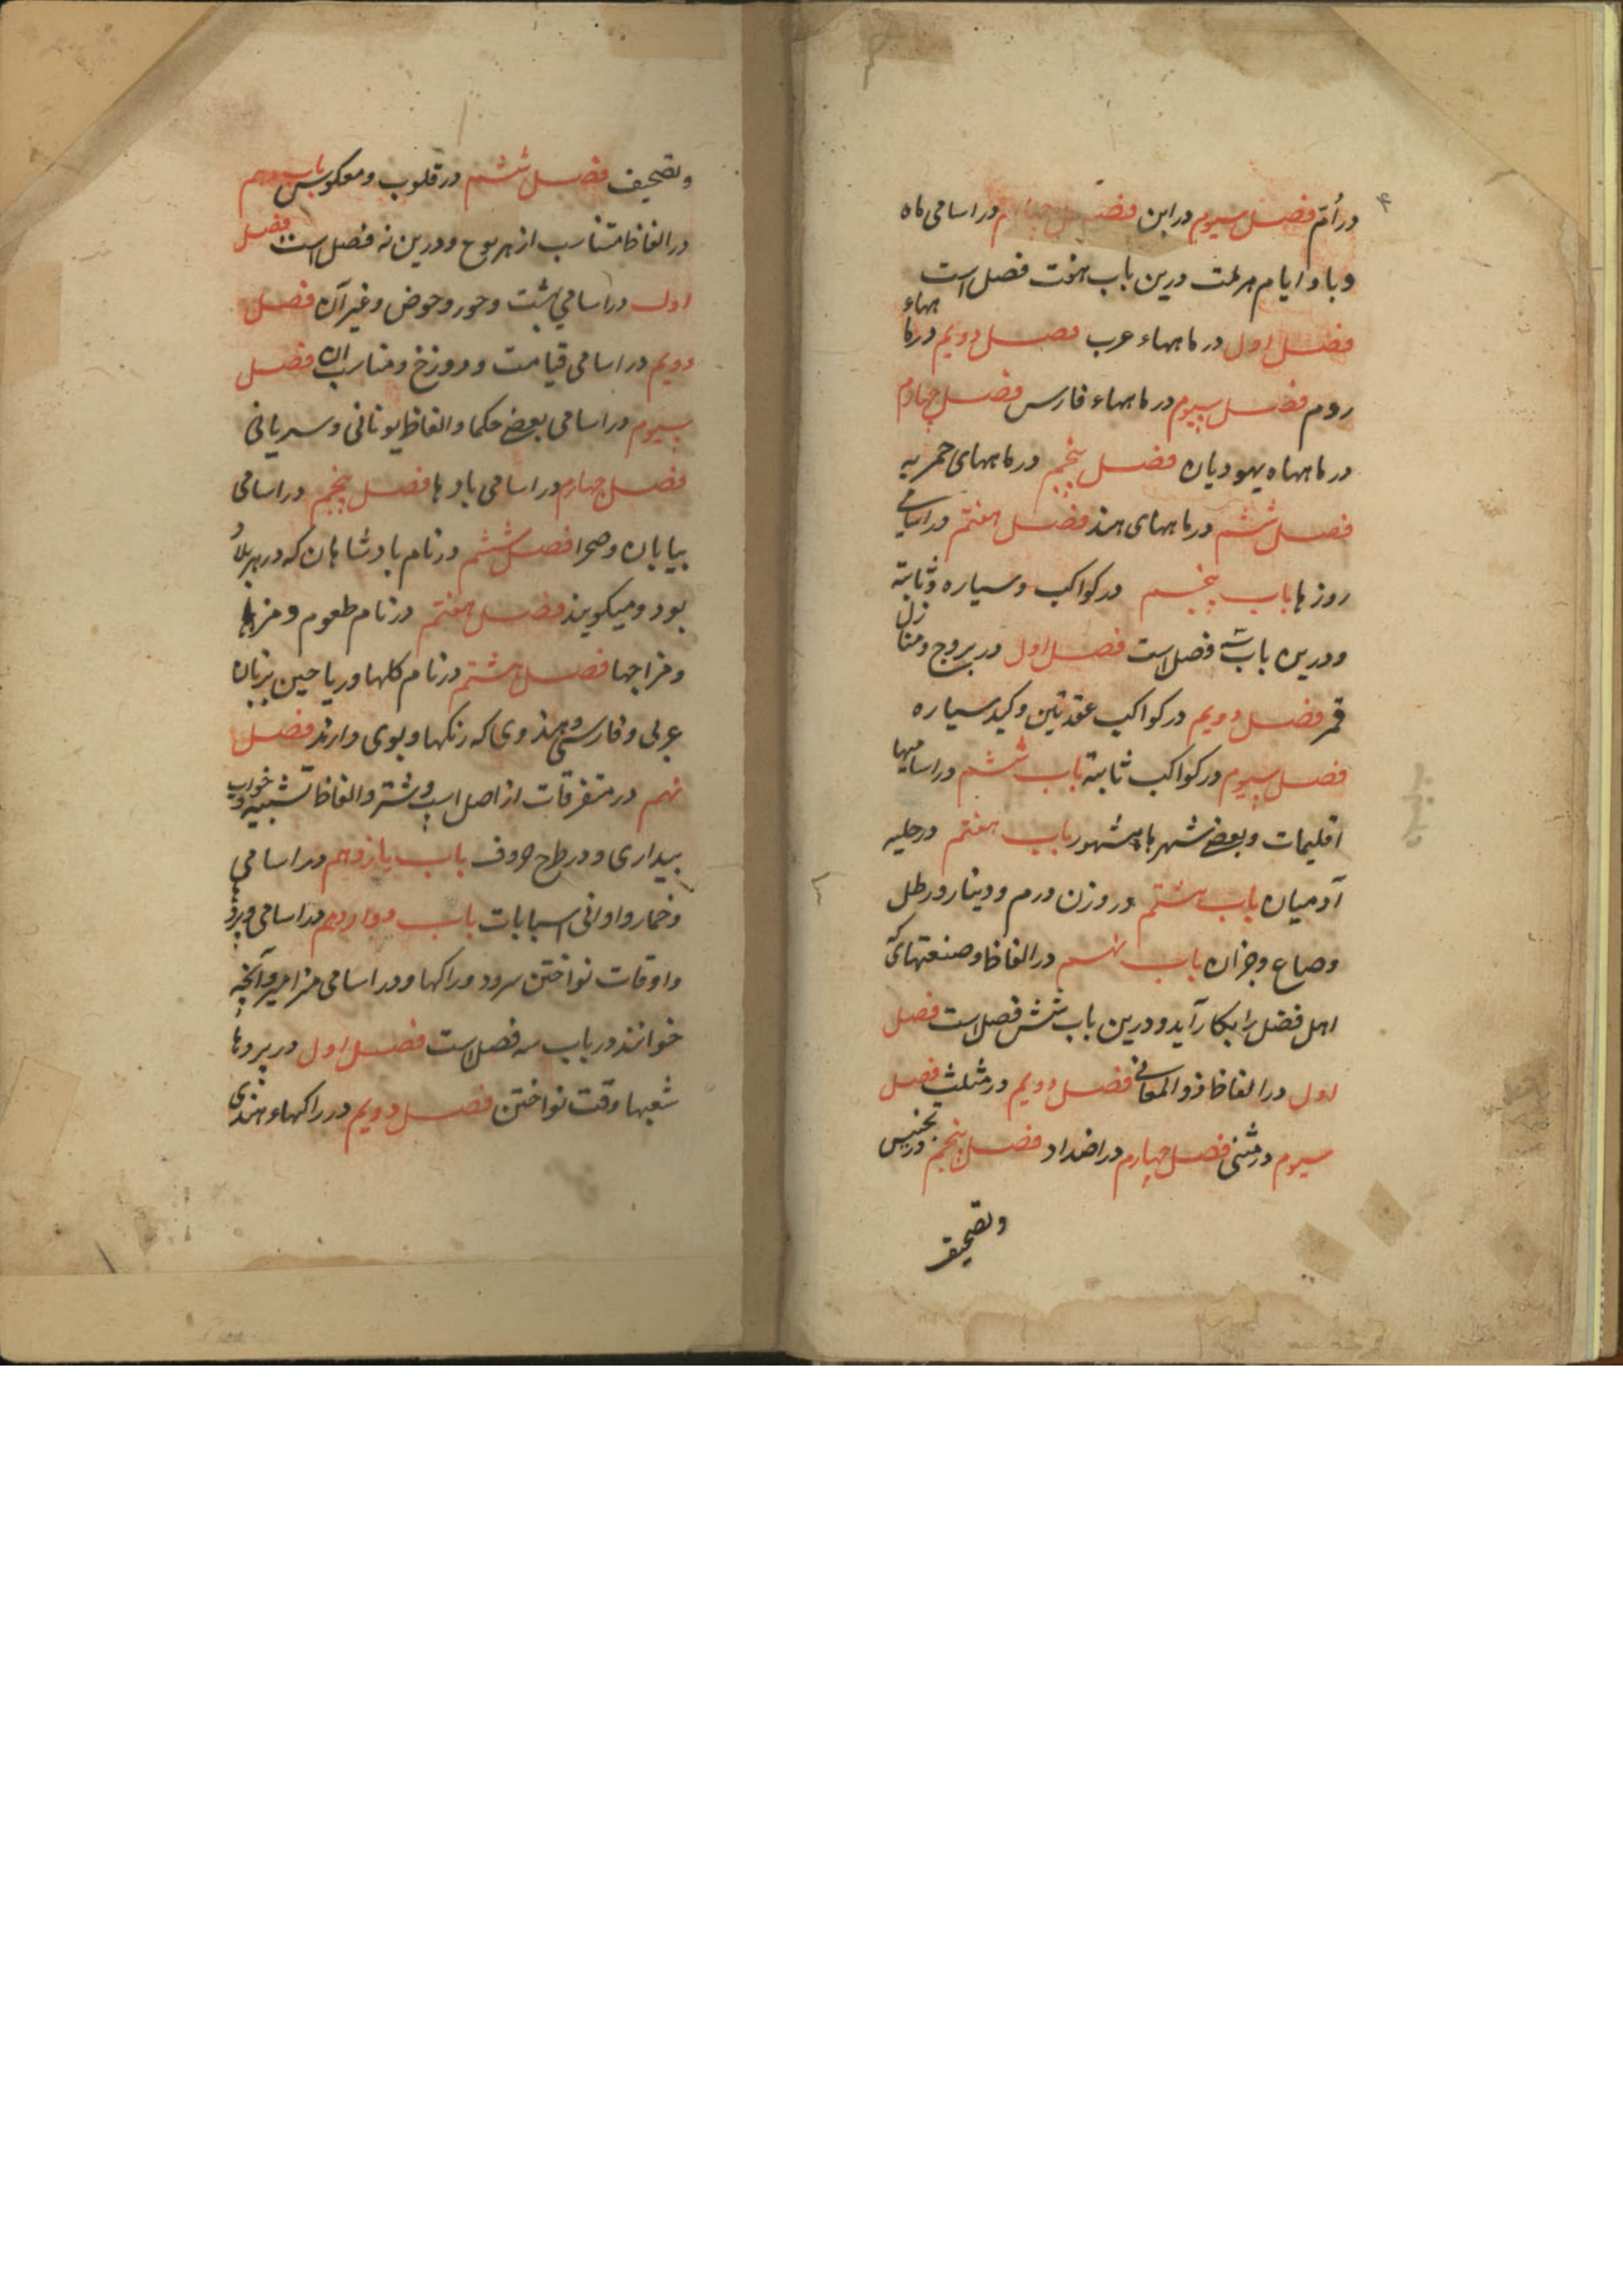 در اُمّ فصل سیوم در ابن فصل چهارم در اسامی ماه
و باد و ایام هر ملت درین باب هفت فصل است
فصل اول در ماههاء عرب فصل دویم در ماههاء
روم فصل سیوم در ماههاء فارس فصل چهارم
در ماههاه یهودیان فصل پنجم در ماههای
فصل ششم در ماههای هند فصل هفتم در اسامی
روزها باب پنجم در کواکب و سیاره و ثابته
و درین باب سه فصل است فصل اول در بروج و منازل
قمر فصل دویم در کواکب و کید سیاره
فصل سیوم در کواکب ثابته باب ششم در اسامیها
اقلیمات و بعضی شهرها مشهور باب هفتم در حلیه
آدمیان باب هشتم در وزن درم و دینار و رطل
و صاع و جز آن باب نهم در الفاظ و صنعتهای که
اهل فضل را بکار آید و درین باب شش فصل است فصل
اول در الفاظ ذو المعانی فصل دویم در مثلث فصل
سیوم در مثنی فصل چهارم در اضداد فصل پنجم در تجنیس
و تصحیف
و تصحیف فصل ششم در قلوب و معکوس باب دهم
در الفاظ متناسب از هر نوع و درین نه فصل است فصل
اول در اسامی بهشت و حور و حوض و غیر آن فصل
دویم در اسامی قیامت و دوزخ و مناسب آن فصل
سیوم در اسامی بعضی حکما و الفاظ یونانی و سریانی
فصل چهارم در اسامی بادها فصل پنجم در اسامی
بیابان و صحرا فصل ششم در نام بادشاهان که در هر بلاد
بود و میکویند فصل هفتم در نام طعوم و مزها
و مزاجها فصل هشتم در نام کلها و ریاحین بزبان
عربی و فارسی و هندوی که رنکها و بوی دارند فصل
نهم در متفرقات از اصل اسپ و شتر و الفاظ تشبیه و خواب
بیداری و در طرح حروف باب یازدهم در اسامی
و خمار و اوانی اسبابات باب دوازدهم در اسامی پرده
و اوقات نواختن سرود و راکها و در اسامی مزامیر و آنچه
خوانند در باب سه فصل است فصل اول در پردها
شعبها وقت نواختن فصل دویم در راکهاء هندی